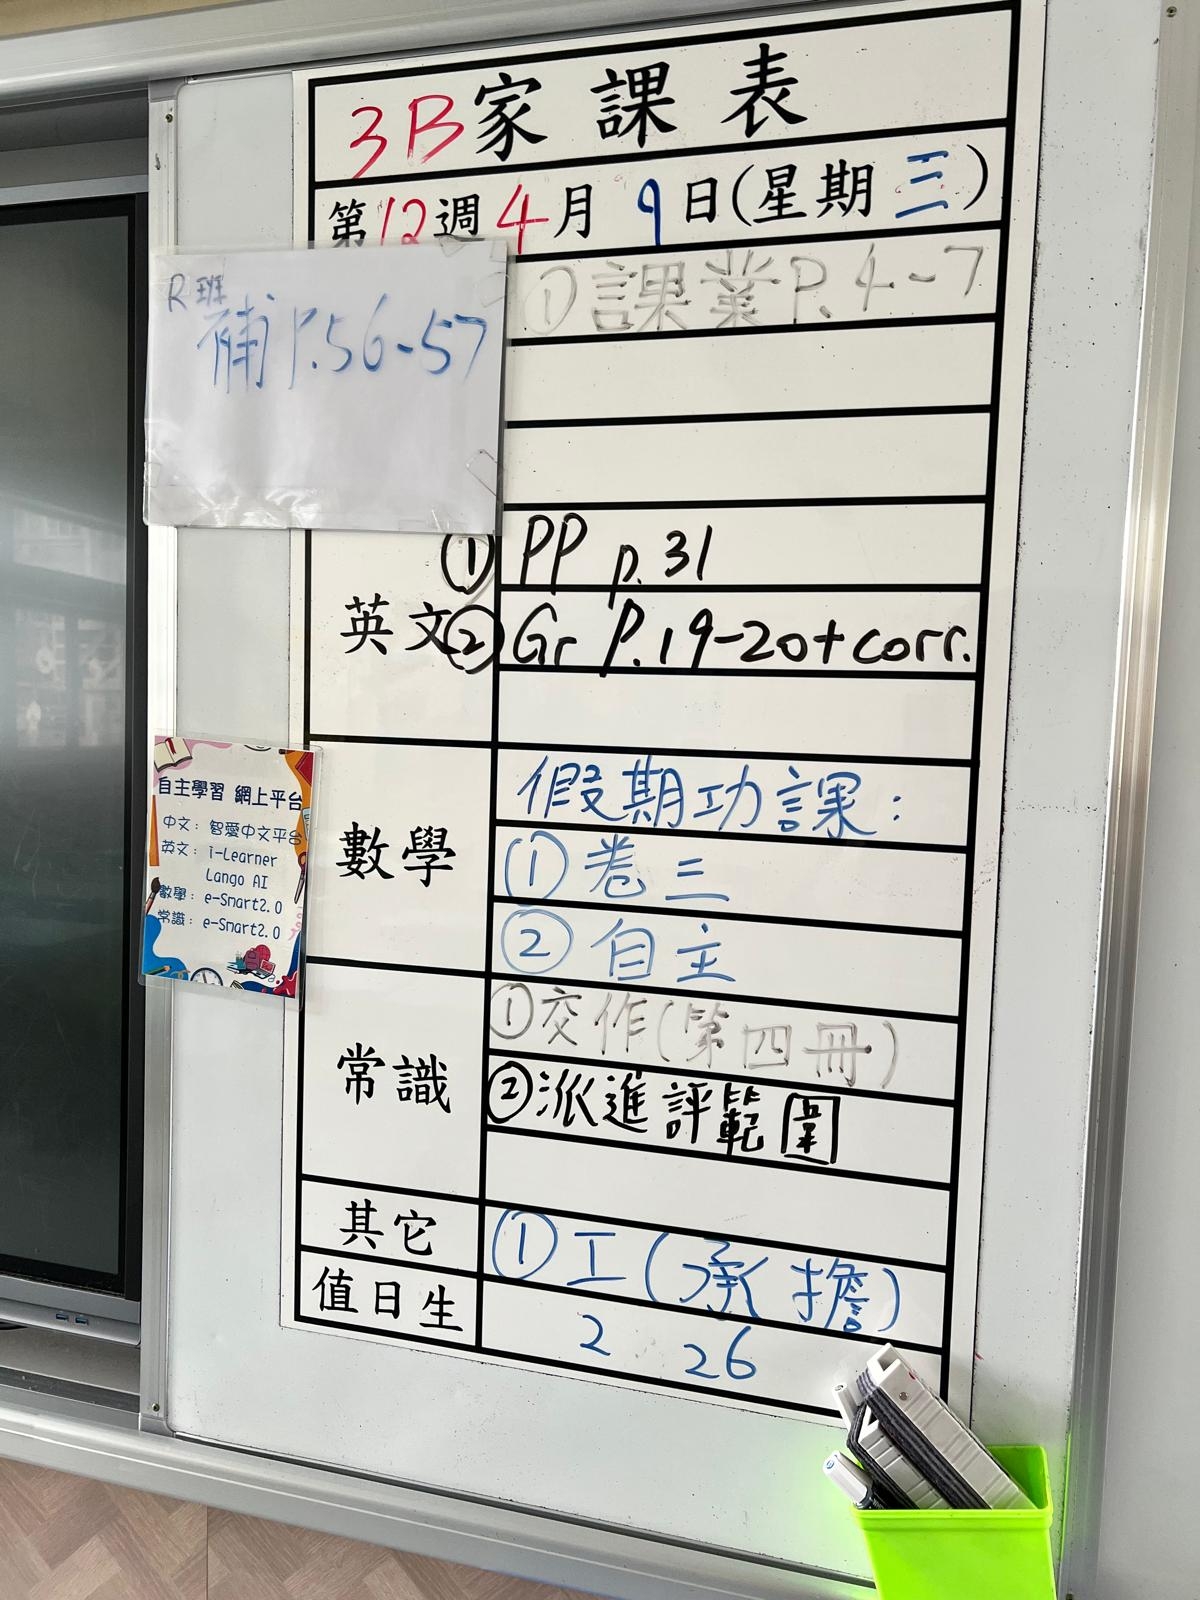 3B家課表
第12週4月9日(星期三)
R班
補P.56-57
①課業P.4-7
英文
①PP p.31
②Gr P.19-20+corr.
數學
假期功課:
①卷三
②自主
常識
①交作(第四冊)
②派進評範圍
其它
①工(承擔)
值日生
2 26
自主學習 網上平台
中文: 智愛中文平台
英文: i-Learner
Lango AI
數學: e-Smart2.0
常識: e-Smart2.0